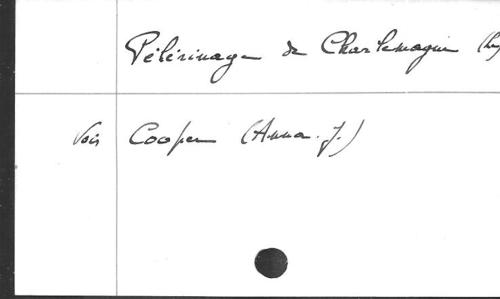 Pélérinage de Charlemagne (Le)
Voir Cooper (Anna. J.)